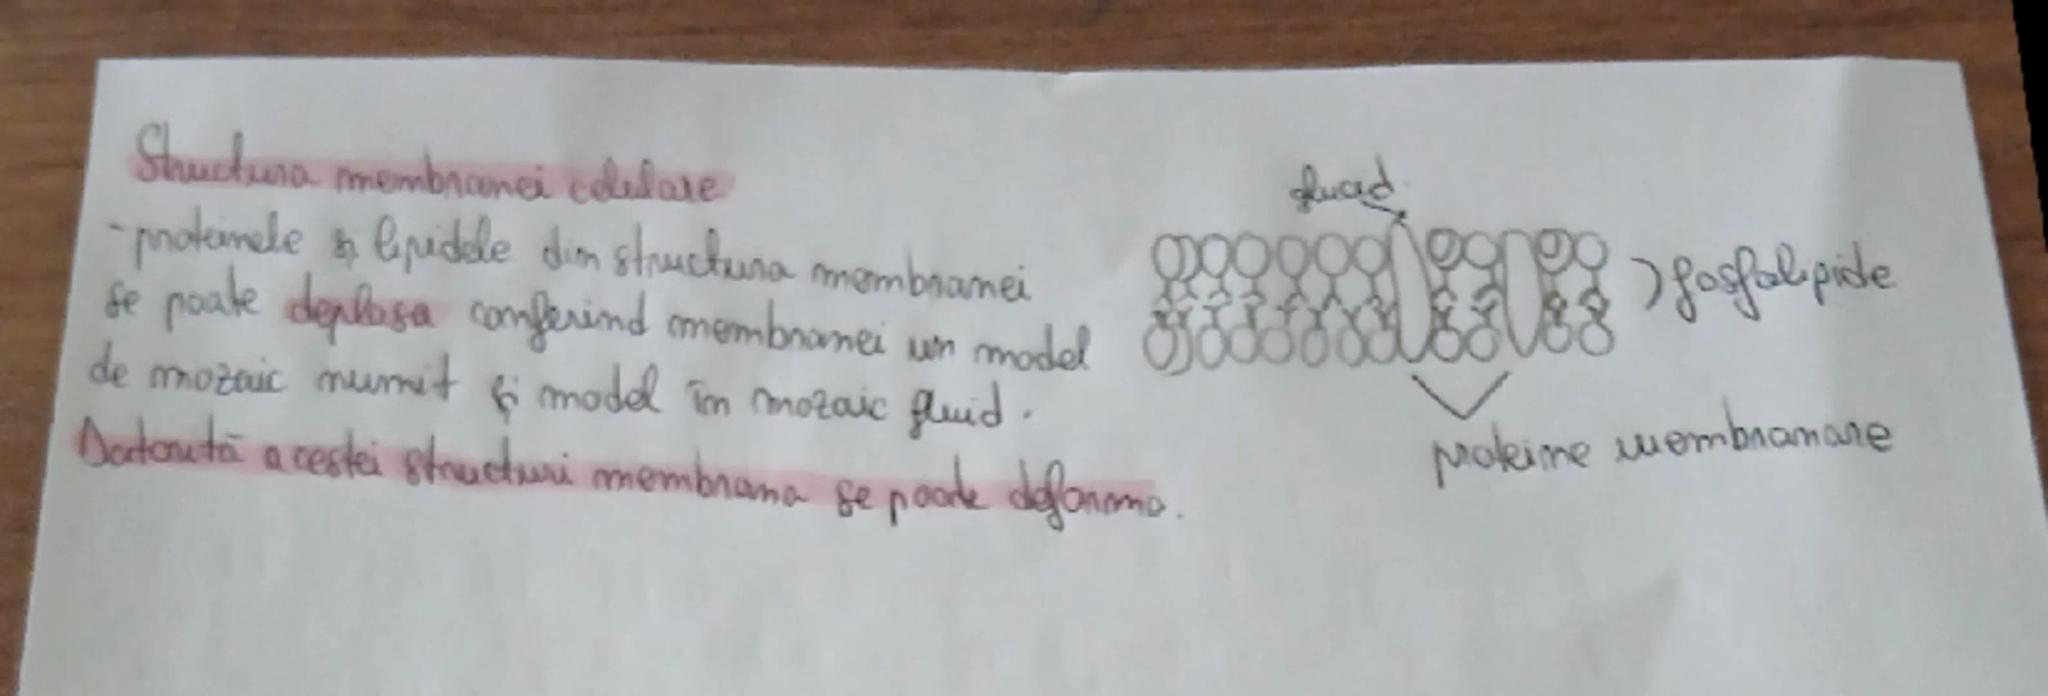 Structura membranei celulare
- proteinele și lipidele din structura membranei
se poate deplasa conferind membranei un model
de mozaic numit și model în mozaic fluid.
Datorită acestei structuri membrana se poate deforma.
glucid
fosfolipide
proteine membranare